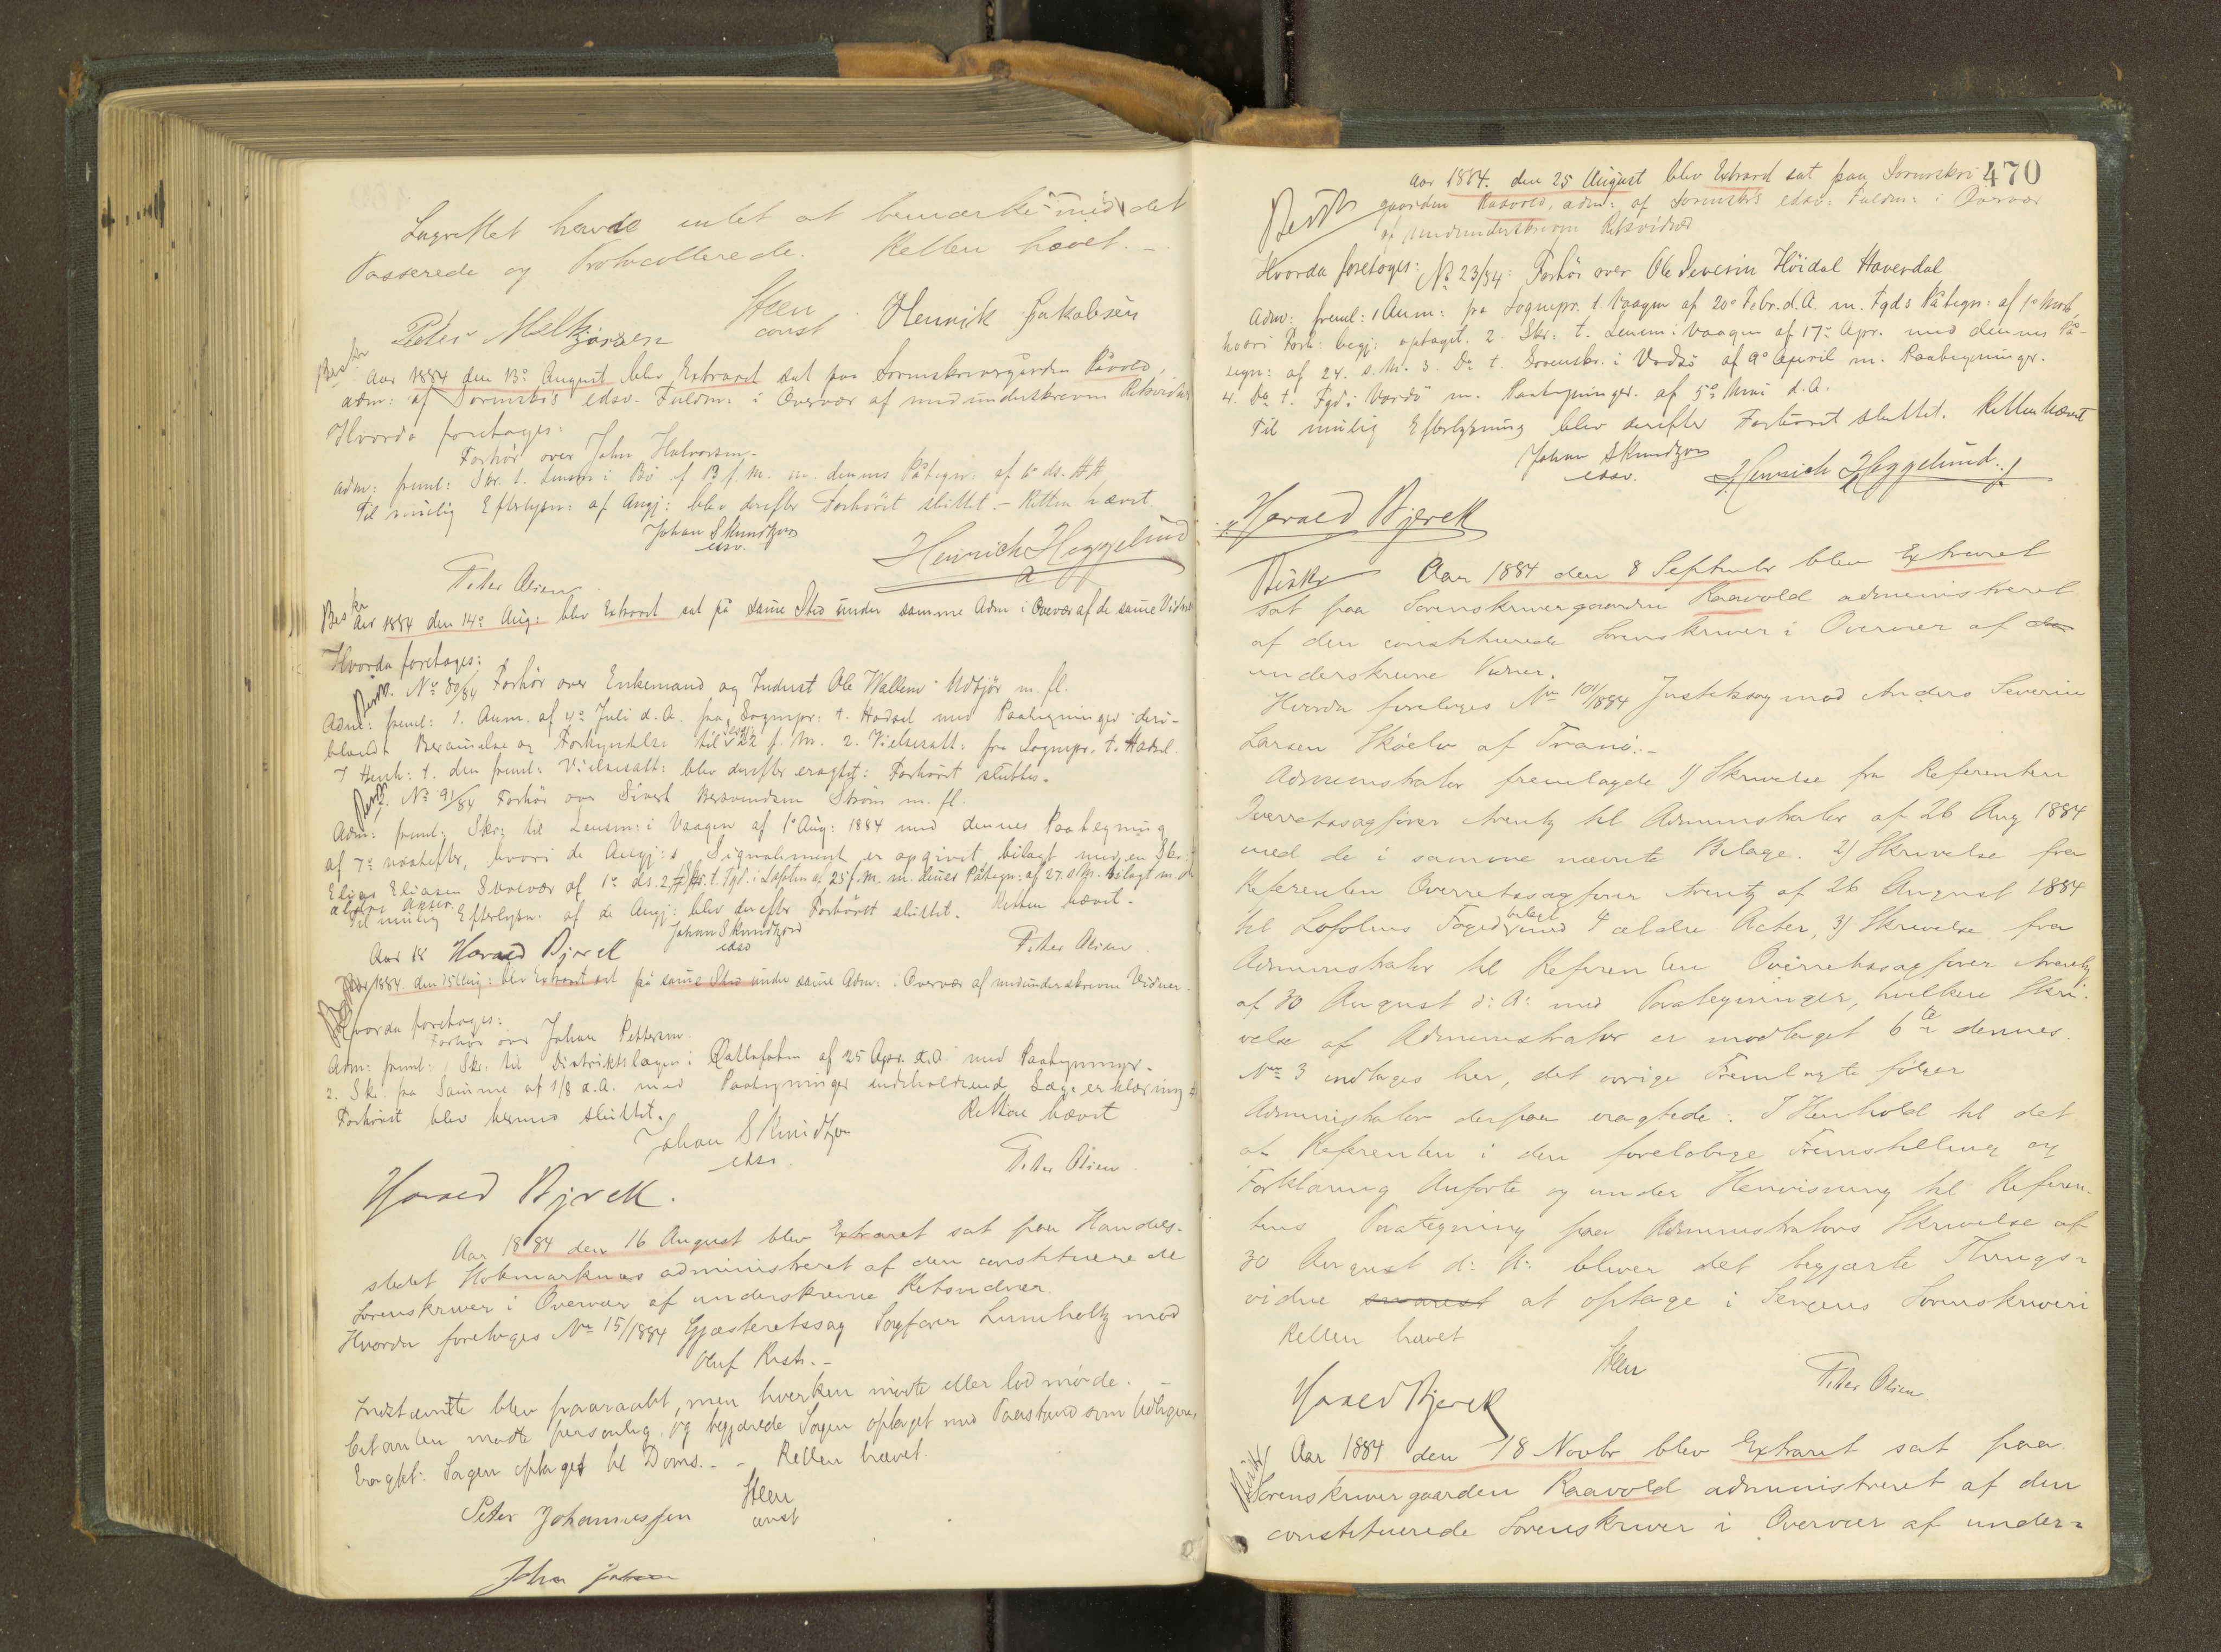 Lagrettet havde intet at bemærke mod det
Passerede og Protocollerede. Retten hævet. -
Steen
const
Peter Meltzorsen
Henrik Jakobsen
Aar 1884 den 13de August blev Extraret sat paa Sorenskrivergården Råvold,
adm: af Sorenskrs edsv. Fuldm: i Overvær af medunderskrevne Retsvidner
Hvorda foretoges:
Forhör over John Halvorsen.
Adm: freml: Skr. t. Lensm i Bö af 13 f. M. m. dennes Påtegn: af 6te ds.
Til mulig Efterlysn: af Angj: blev derefter Forhöret sluttet. - Retten hævet.
Johan S Knudtzon
edsv.
Heinrich Heggelund
Peter Olsen
Aar 1884 den 14de Aug: blev Extraret sat på samme Sted under samme Adm i Overvær af de samme Vidner
Hvorda foretoges:
No 80/84 Forhör over Enkemand og Inderst Ole Wallem Udtjör m. fl.
Adm: freml: 1. Anm. af 4de Juli d.A. fra Sognepr: t. Hadsel med Paategninger deri-
blandt Berammelse og Forkyndelse til 22 f. M. 2. Vielsesatt: fra Sognepr. t. Hadsel.
I Henh: t. den freml: Vielsesatt: blev derefter eragtet: Forhöret sluttes.
No 91/84 Forhör over Sivert Berövendsen Ström m. fl.
Adm: freml: Skr: til Lensm: i Vaagen af 1ste Aug: 1884 med dennes Paategning
af 7de næstefter, hvori de Angj:s Signalement er opgivet, bilagt med en Skr: f
Elias Eliasen Svolvær af 1ste ds. 2, Skr. t. Fgd. i Lofoten af 25 f. M. m. dennes Påtegn: af 27. s. M. bilagt m. de
ældre Acter.
Til mulig Efterlysn: af de Angj: blev derefter Forhöret sluttet. Retten hævet.
Johan S Knudtzon
edsv
Aar 18 Harald Bjerck
Peter Olsen
Aar 1884 den 15 Aug: blev Extraret sat på samme Sted under samme Adm: i Overvær af medunderskrevne Vidner.
Hvorda foretoges:
Forhör over Johan Pettersen.
Adm: freml: 1, Skr. til Distriktslægen i Östlofoten af 25 Apr. d.A. med Paategninger.
2. Skr. fra Samme af 1/8 d.A. med Paategninger indeholdende Lægeerklæring
Forhöret blev hermed sluttet.
Retten hævet
Johan S Knudtzon
edsv.
Peter Olsen
Harald Bjerck.
Aar 1884 den 16 August blev Extraret sat paa Handels-
stedet Stokmarknæs administreret af den constituerede
Sorenskriver i Overvær af underskrevne Retsvidner.
Hvorda foretoges No 15/1884 Gjæsteretssag Sagfører Lumholtz mod
Oluf Rist. -
Indstævnte blev paaraabt, men hverken mödte eller lod möde. -
Citanten mödte personlig, og begjærede Sagen optaget med Paastand som tidligere,
Eragtet: Sagen optaget til Doms. - - Retten hævet.
Steen
const
Peter Johannessen
470
Aar 1884. den 25 August blev Extraret sat paa Sorenskri-
gaarden Raavold, adm: af Sorenskrs edsv. Fuldm: i Overvær
af medunderskrevne Retsvidner
Hvorda foretoges: No 23/84: Forhör over Ole Severin Höidal Haverdal
Adm: freml: 1 Anm: fra Sognepr. t. Vaagen af 20de Febr. d.A. m. Fgds Påtegn: af 1ste Marts,
hvori Forh: begj: optaget. 2. Skr: t. Lensm i Vaagen af 17de Apr. med dennes På-
tegn: af 24. s. M. 3. Do t. Sorenskr. i Vadsö af 9de April m. Paategninger.
4. Do t. Fgd. i Vardö m. Paategninger. af 5te Mai d.A.
Til mulig Efterlysning blev derefter Forhöret sluttet. Retten hævet
Johan S Knudtzon
edsv.
Heinrich Heggelund
Harald Bjerck
Aar 1884 den 8 Septembr blev Extraret
sat paa Sorenskrivergaarden Raavold administreret
af den constituerede Sorenskriver i Overvær af de
underskrevne Vidner.
Hvorda foretoges No 101/1884 Justitssag mod Anders Severin
Larsen Skoelv af Tranö. -
Administrator fremlagde 1) Skrivelse fra Referenten
Overretssagfører Arentz til Administrator af 26 Aug 1884
med de i samme nævnte Bilage. 2) Skrivelse fra
Referenten Overretssagfører Arentz af 26 August 1884
til Lofotens Fogderi bilagt med 4 ældre Acter, 3) Skrivelse fra
Administrator til Referenten Overretssagfører Arentz
af 30 August d: A: med Paategninger, hvilken Skri-
velse af Administrator er modtaget 6te dennes.
No 3 indtages her, det øvrige Fremlagte følger
Administrator derpaa eragtede: I Henhold til det
af Referenten i den foreløbige Fremstilling og
Forklaring Anførte og under Henvisning til Referen-
tens Paategning paa Administrators Skrivelse af
30 August d: A: bliver det begjærte Things-
vidne snarest at optage i Senjens Sorenskriveri
Retten hævet
Steen
Peter Olsen
Harald Bjerck
Aar 1884 den 18 Novbr blev Extraret sat paa
Sorenskrivergaarden Raavold administreret af den
constituerede Sorenskriver i Overvær af under-